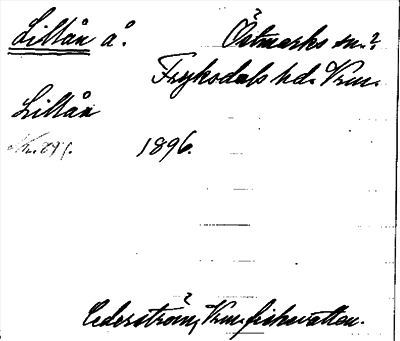 Lillån å. Östmarks sn.?
Fryksdals hd. Vrm.
Lillån
1896.
Cederström, Vrm. fiskevatten.